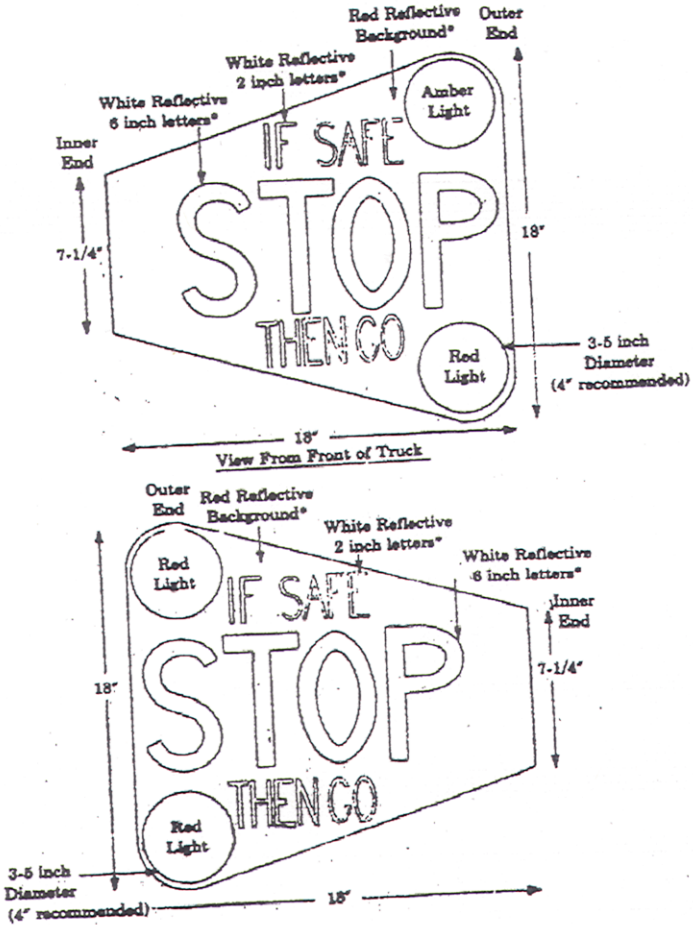 Red Reflective
Background*
Outer
End
White Reflective
2 inch letters*
White Reflective
6 inch letters*
Amber
Light
Inner
End
IF SAFE
STOP
7-1/4"
18"
THEN GO
Red
Light
3-5 inch
Diameter
(4" recommended)
18"
View From Front of Truck
Outer
End
Red Reflective
Background*
White Reflective
2 inch letters*
White Reflective
6 inch letters*
Red
Light
IF SAFE
Inner
End
STOP
7-1/4"
18"
THEN GO
Red
Light
3-5 inch
Diameter
(4" recommended)
18"